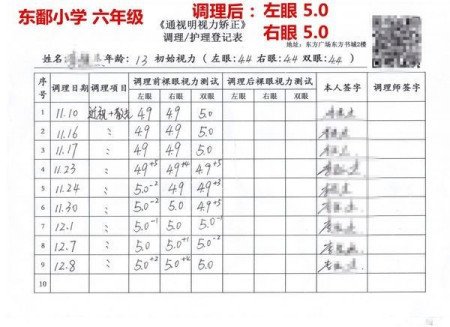 东鄱小学 六年级
调理后：左眼 5.0
右眼 5.0
《通视明视力矫正》
调理/护理登记表
地址：东方广场东方书城2楼
姓名： 年龄：13 初始视力 （左眼：44 右眼：44 双眼：44 ）
序号 调理日期 调理项目 调理前裸眼视力测试 调理后裸眼视力测试 本人签字 调理师签字
左眼 右眼 双眼 左眼 右眼 双眼
1 11.10 近视+ 49 49 5.0
2 11.16 〃 49 49 5.0
3 11.17 〃 49 49 5.0
4 11.23 〃 49+5 49+4 49+5
5 11.24 〃 5.0-2 49 49+3
6 11.30 〃 5.0-2 5.0 49+5
7 12.1 〃 5.0-1 5.0 5.0-1
8 12.7 〃 5.0 5.0+1 5.0-2
9 12.8 〃 5.0+2 5.0+4 5.0
10